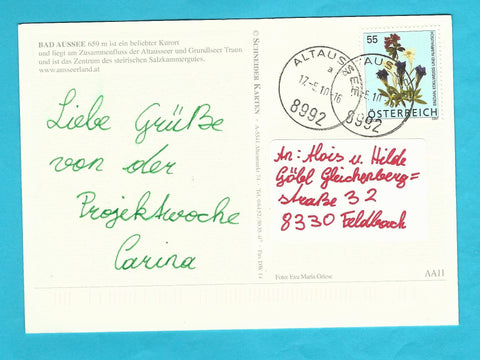 BAD AUSSEE 659 m ist ein beliebter Kurort
und liegt am Zusammenfluss der Altausseer und Grundlseer Traun
und ist das Zentrum des steirischen Salzkammergutes.
www.ausseerland.at
Liebe Grüße
von der
Projektwoche
Carina
© SCHNEIDER KARTEN
ALTAUSSEE
a
17.-5.10-16
8992
8992
55
ÖSTERREICH
An: Alois u. Hilde
Göbl Gleichenberg=
straße 32
8330 Feldbach
Foto: Eva Maria Griese
AA11